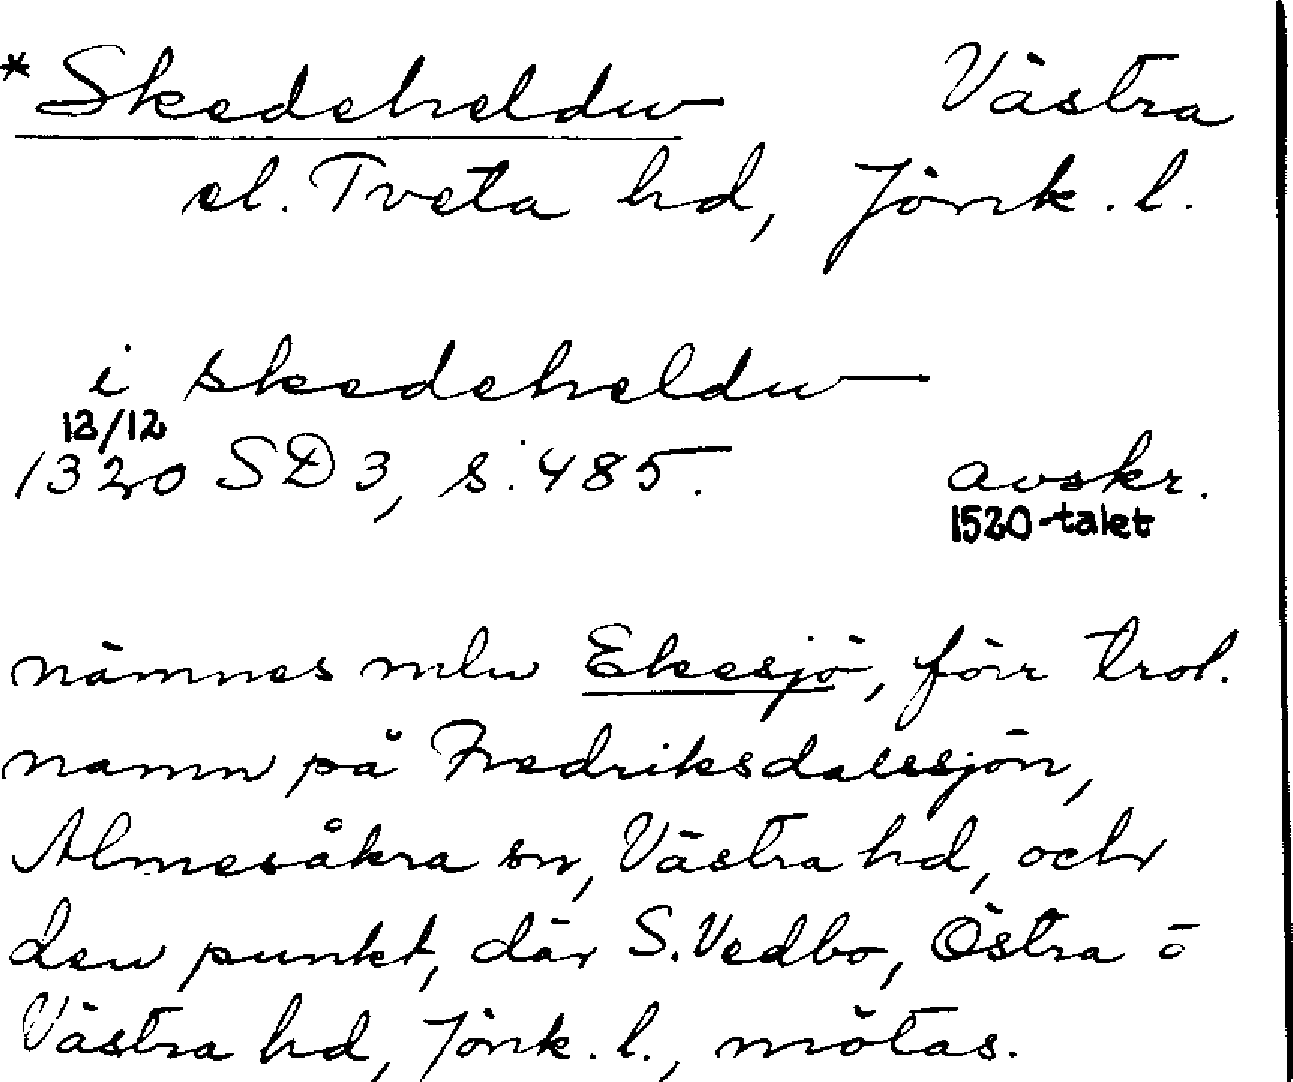 *Skedeheldu
Västra
el. Tveta hd, Jönk. l.
i skedeheldu
12/12
1320 SD 3, s. 485. avskr.
1520-talet
nämnes mlu Ekesjö, förr trol.
namn på Fredriksdalssjön,
Almesåkra sn, Västra hd, och
den punkt, där S. Vedbo, Östra o
Västra hd, Jönk. l., mötas.